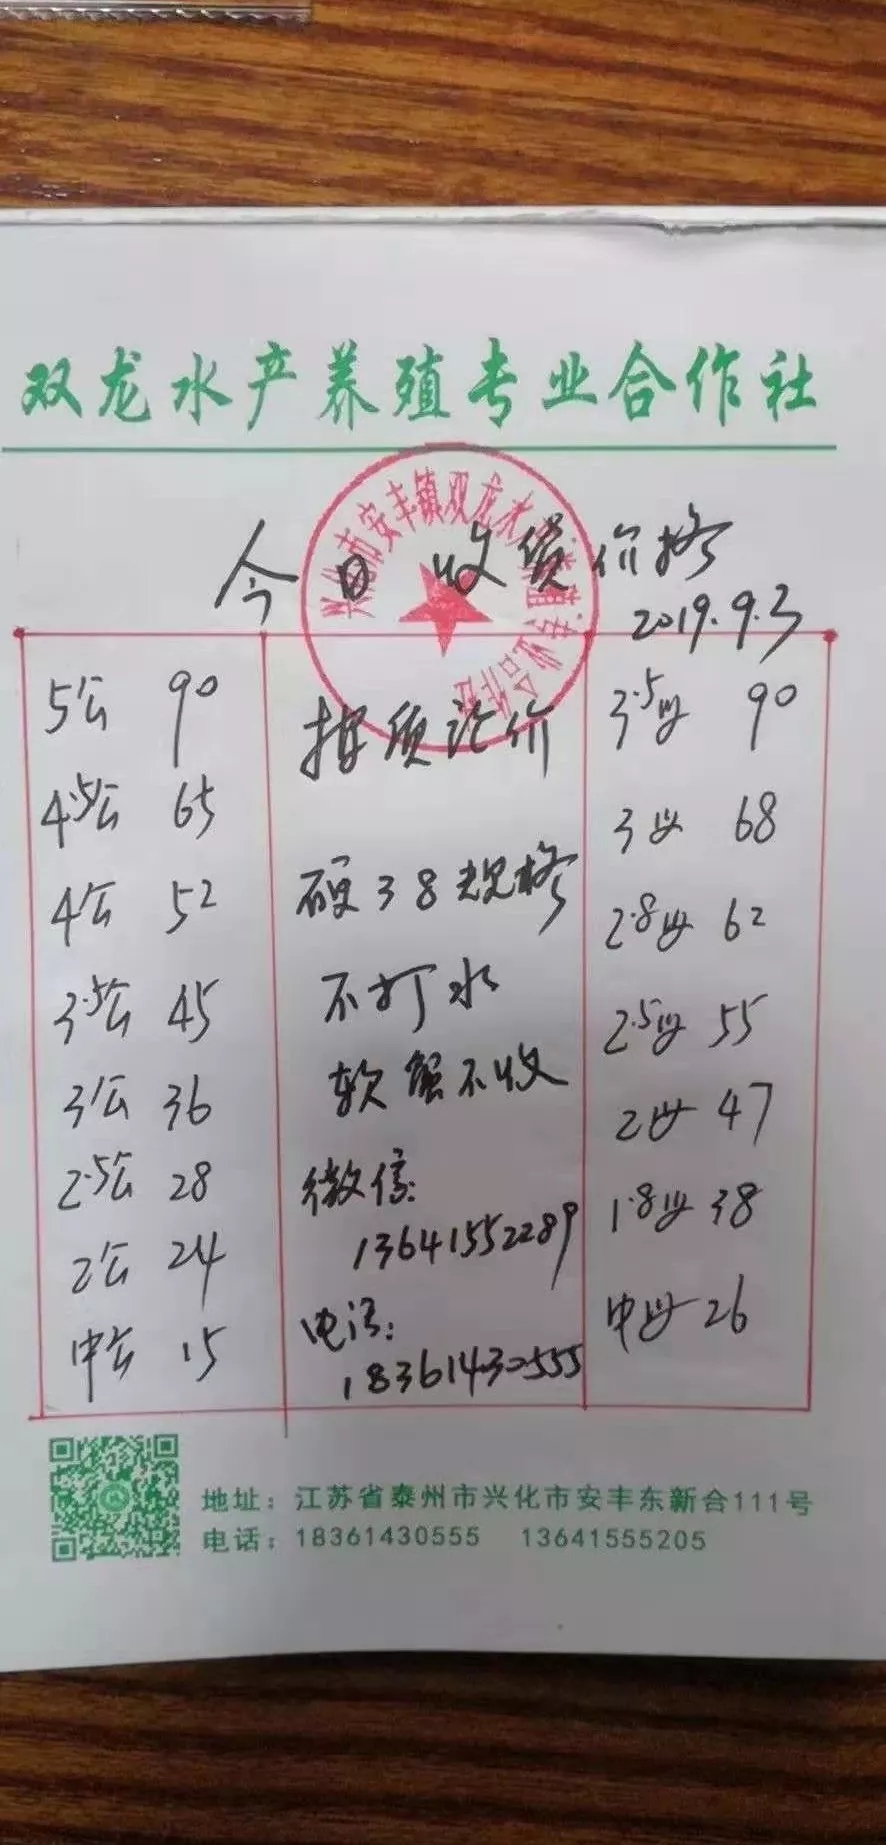 双龙水产养殖专业合作社
兴化市安丰镇双龙水产养殖专业合作社
今日收货价格
2019.9.3
5公 90
4.5公 65
4公 52
3.5公 45
3公 36
2.5公 28
2公 24
中公 15
按质论价
硬38规格
不打水
软蟹不收
微信:
13641552289
电话:
18361430555
3.5母 90
3母 68
2.8母 62
2.5母 55
2母 47
1.8母 38
中母 26
地址：江苏省泰州市兴化市安丰东新合111号
电话：18361430555 13641555205